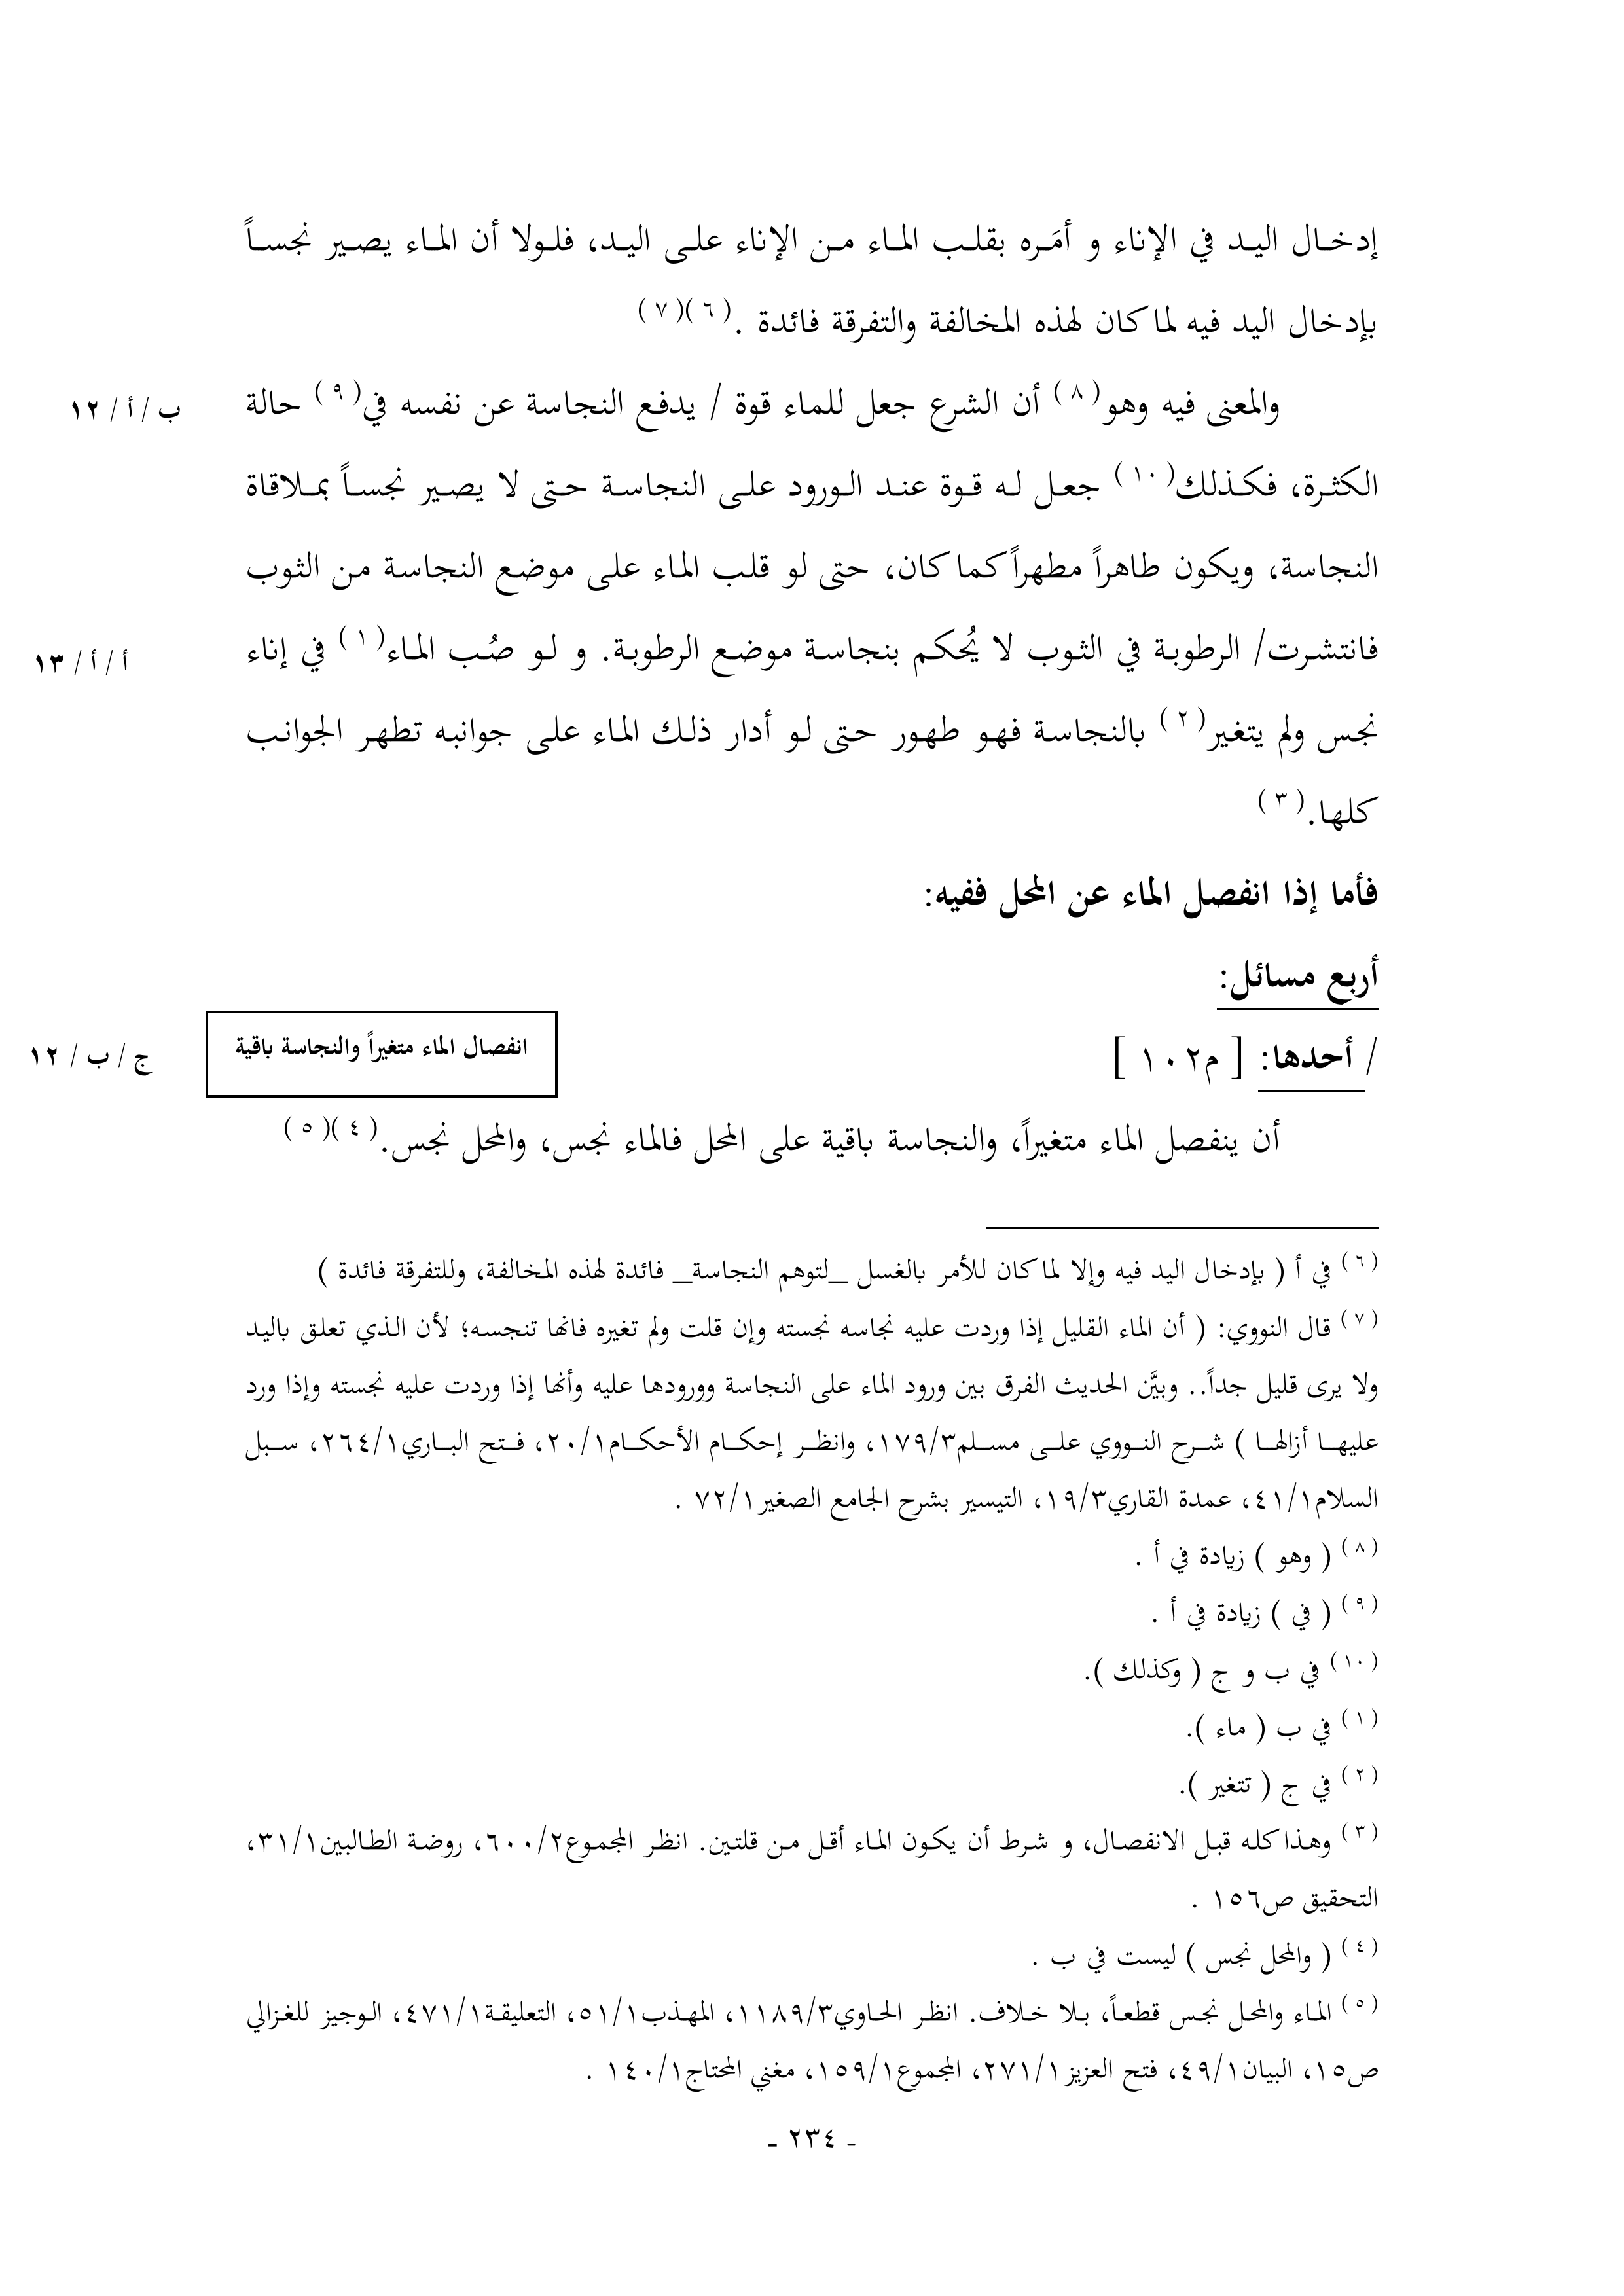 إدخال اليد في الإناء و أمَره بقلب الماء من الإناء على اليد، فلولا أن الماء يصير نجساً
بإدخال اليد فيه لما كان لهذه المخالفة والتفرقة فائدة .(٦)(٧)
والمعنى فيه وهو(٨) أن الشرع جعل للماء قوة / يدفع النجاسة عن نفسه في(٩) حالة
ب /أ / ١٢
الكثرة، فكذلك(١٠) جعل له قوة عند الورود على النجاسة حتى لا يصير نجساً بملاقاة
النجاسة، ويكون طاهراً مطهراً كما كان، حتى لو قلب الماء على موضع النجاسة من الثوب
فانتشرت/ الرطوبة في الثوب لا يُحكم بنجاسة موضع الرطوبة. و لو صُب الماء(١) في إناء
أ / أ / ١٣
نجس ولم يتغير(٢) بالنجاسة فهو طهور حتى لو أدار ذلك الماء على جوانبه تطهر الجوانب
كلها.(٣)
فأما إذا انفصل الماء عن المحل ففيه:
أربع مسائل:
/ أحدها: [ م١٠٢ ]
انفصال الماء متغيراً والنجاسة باقية
ج / ب / ١٢
أن ينفصل الماء متغيراً، والنجاسة باقية على المحل فالماء نجس، والمحل نجس.(٤)(٥)
(٦) في أ ( بإدخال اليد فيه وإلا لما كان للأمر بالغسل _لتوهم النجاسة_ فائدة لهذه المخالفة، وللتفرقة فائدة )
(٧) قال النووي: ( أن الماء القليل إذا وردت عليه نجاسه نجسته وإن قلت ولم تغيره فانها تنجسه؛ لأن الذي تعلق باليد
ولا يرى قليل جداً.. وبيَّن الحديث الفرق بين ورود الماء على النجاسة وورودها عليه وأنها إذا وردت عليه نجسته وإذا ورد
عليها أزالها ) شرح النووي على مسلم١٧٩/٣، وانظر إحكام الأحكام٢٠/١، فتح الباري٢٦٤/١، سبل
السلام٤١/١، عمدة القاري١٩/٣، التيسير بشرح الجامع الصغير٧٢/١ .
(٨) ( وهو ) زيادة في أ .
(٩) ( في ) زيادة في أ .
(١٠) في ب و ج ( وكذلك ).
(١) في ب ( ماء ).
(٢) في ج ( تتغير ).
(٣) وهذا كله قبل الانفصال، و شرط أن يكون الماء أقل من قلتين. انظر المجموع٦٠٠/٢، روضة الطالبين٣١/١،
التحقيق ص١٥٦ .
(٤) ( والمحل نجس ) ليست في ب .
(٥) الماء والمحل نجس قطعاً، بلا خلاف. انظر الحاوي١١٨٩/٣، المهذب٥١/١، التعليقة٤٧١/١، الوجيز للغزالي
ص١٥، البيان٤٩/١، فتح العزيز٢٧١/١، المجموع١٥٩/١، مغني المحتاج١٤٠/١ .
- ٢٣٤ -